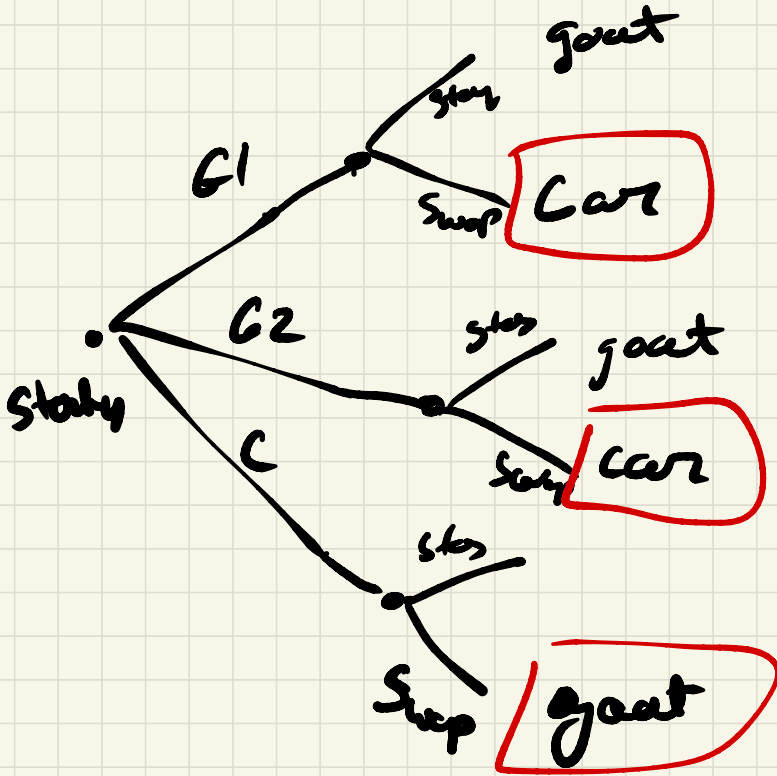 goat
stay
G1
Swap
Car
G2
stay
goat
car
C
stay
Swap
goat